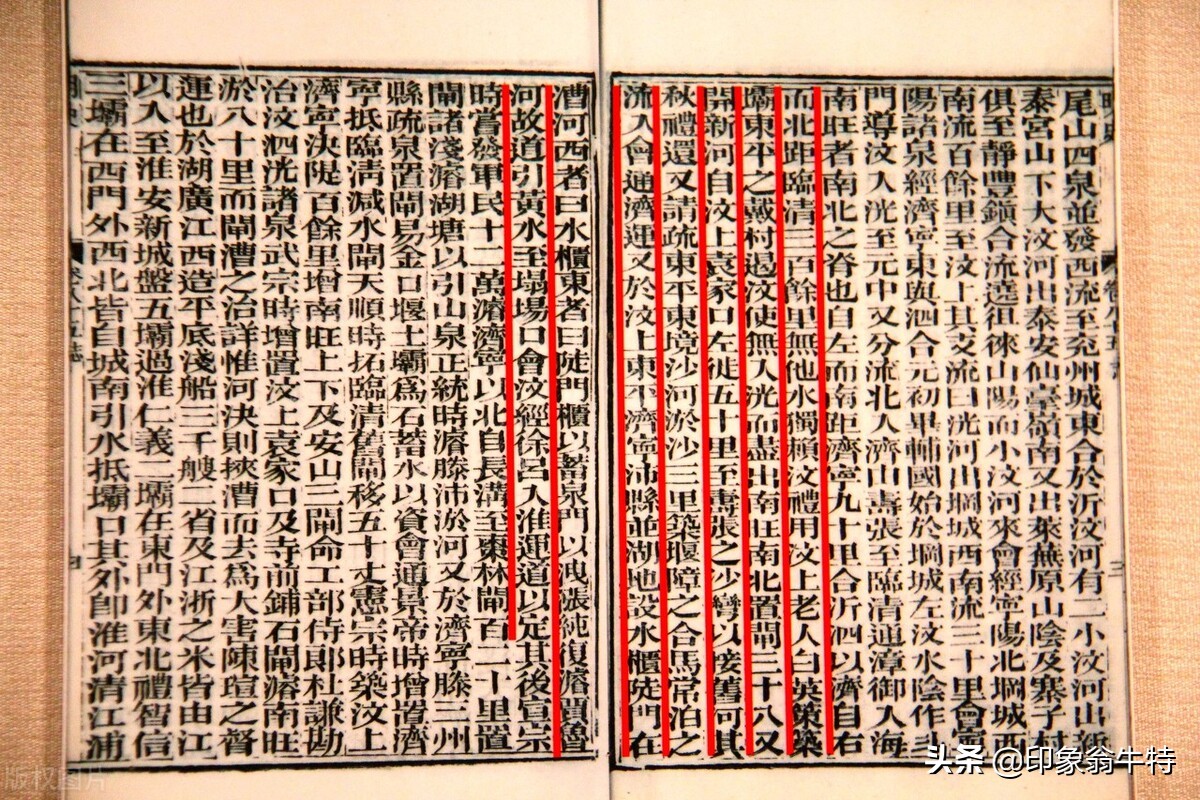 尾山四泉並發西流至兗州城東合於沂汶河有二小汶河出新
泰宮山下大汶河出泰安仙臺嶺南又出萊蕪原山陰及寨子村
俱至靜豐鎮合流遶徂徠山陽而小汶河來會經寧陽北堽城西
南流百餘里至汶上其支流曰洸河出堽城西南流三十里會寧
陽諸泉經濟寧東與泗合元初畢輔國始於堽城左汶水陰作斗
門導汶入洸至元中又分流北入濟由壽張至臨清通漳御入海
南旺者南北之脊也自左而南距濟寧九十里合沂泗以濟自右
而北距臨清三百餘里無他水獨賴汶禮用汶上老人白英策築
壩東平之戴村遏汶使無入洸而盡出南旺南北置閘三十八又
開新河自汶上袁家口左徙五十里至壽張之沙灣以接舊河其
秋禮還又請疏東平東境沙河淤沙三里築堰障之合馬常泊之
流入會通濟運又於汶上東平濟寧沛縣並湖地設水櫃陡門在
漕河西者曰水櫃東者曰陡門櫃以蓄泉門以洩漲純復濬賈魯
河故道引黃水至塌場口會汶經徐呂入淮運道以定其後宣宗
時嘗發軍民十二萬濬濟寧以北自長溝至棗林閘百二十里置
閘諸淺濬湖塘以引山泉正統時濬滕沛淤河又於濟寧滕三州
縣疏泉置閘易金口堰土壩爲石蓄水以資會通景帝時增置濟
寧抵臨清減水閘天順時拓臨清舊閘移五十丈憲宗時築汶上
濟寧決隄百餘里增南旺上下及安山三閘命工部侍郎杜謙勘
治汶泗洸諸泉武宗時增置汶上袁家口及寺前鋪石閘濬南旺
淤八十里而閘漕之治詳惟河決則挾漕而去爲大害陳瑄之督
運也於湖廣江西造平底淺船三千艘二省及江浙之米皆由江
以入至淮安新城盤五壩過淮仁義二壩在東門外東北禮智信
三壩在西門外西北皆自城南引水抵壩口其外卽淮河清江浦
版权图片
头条 @印象翁牛特